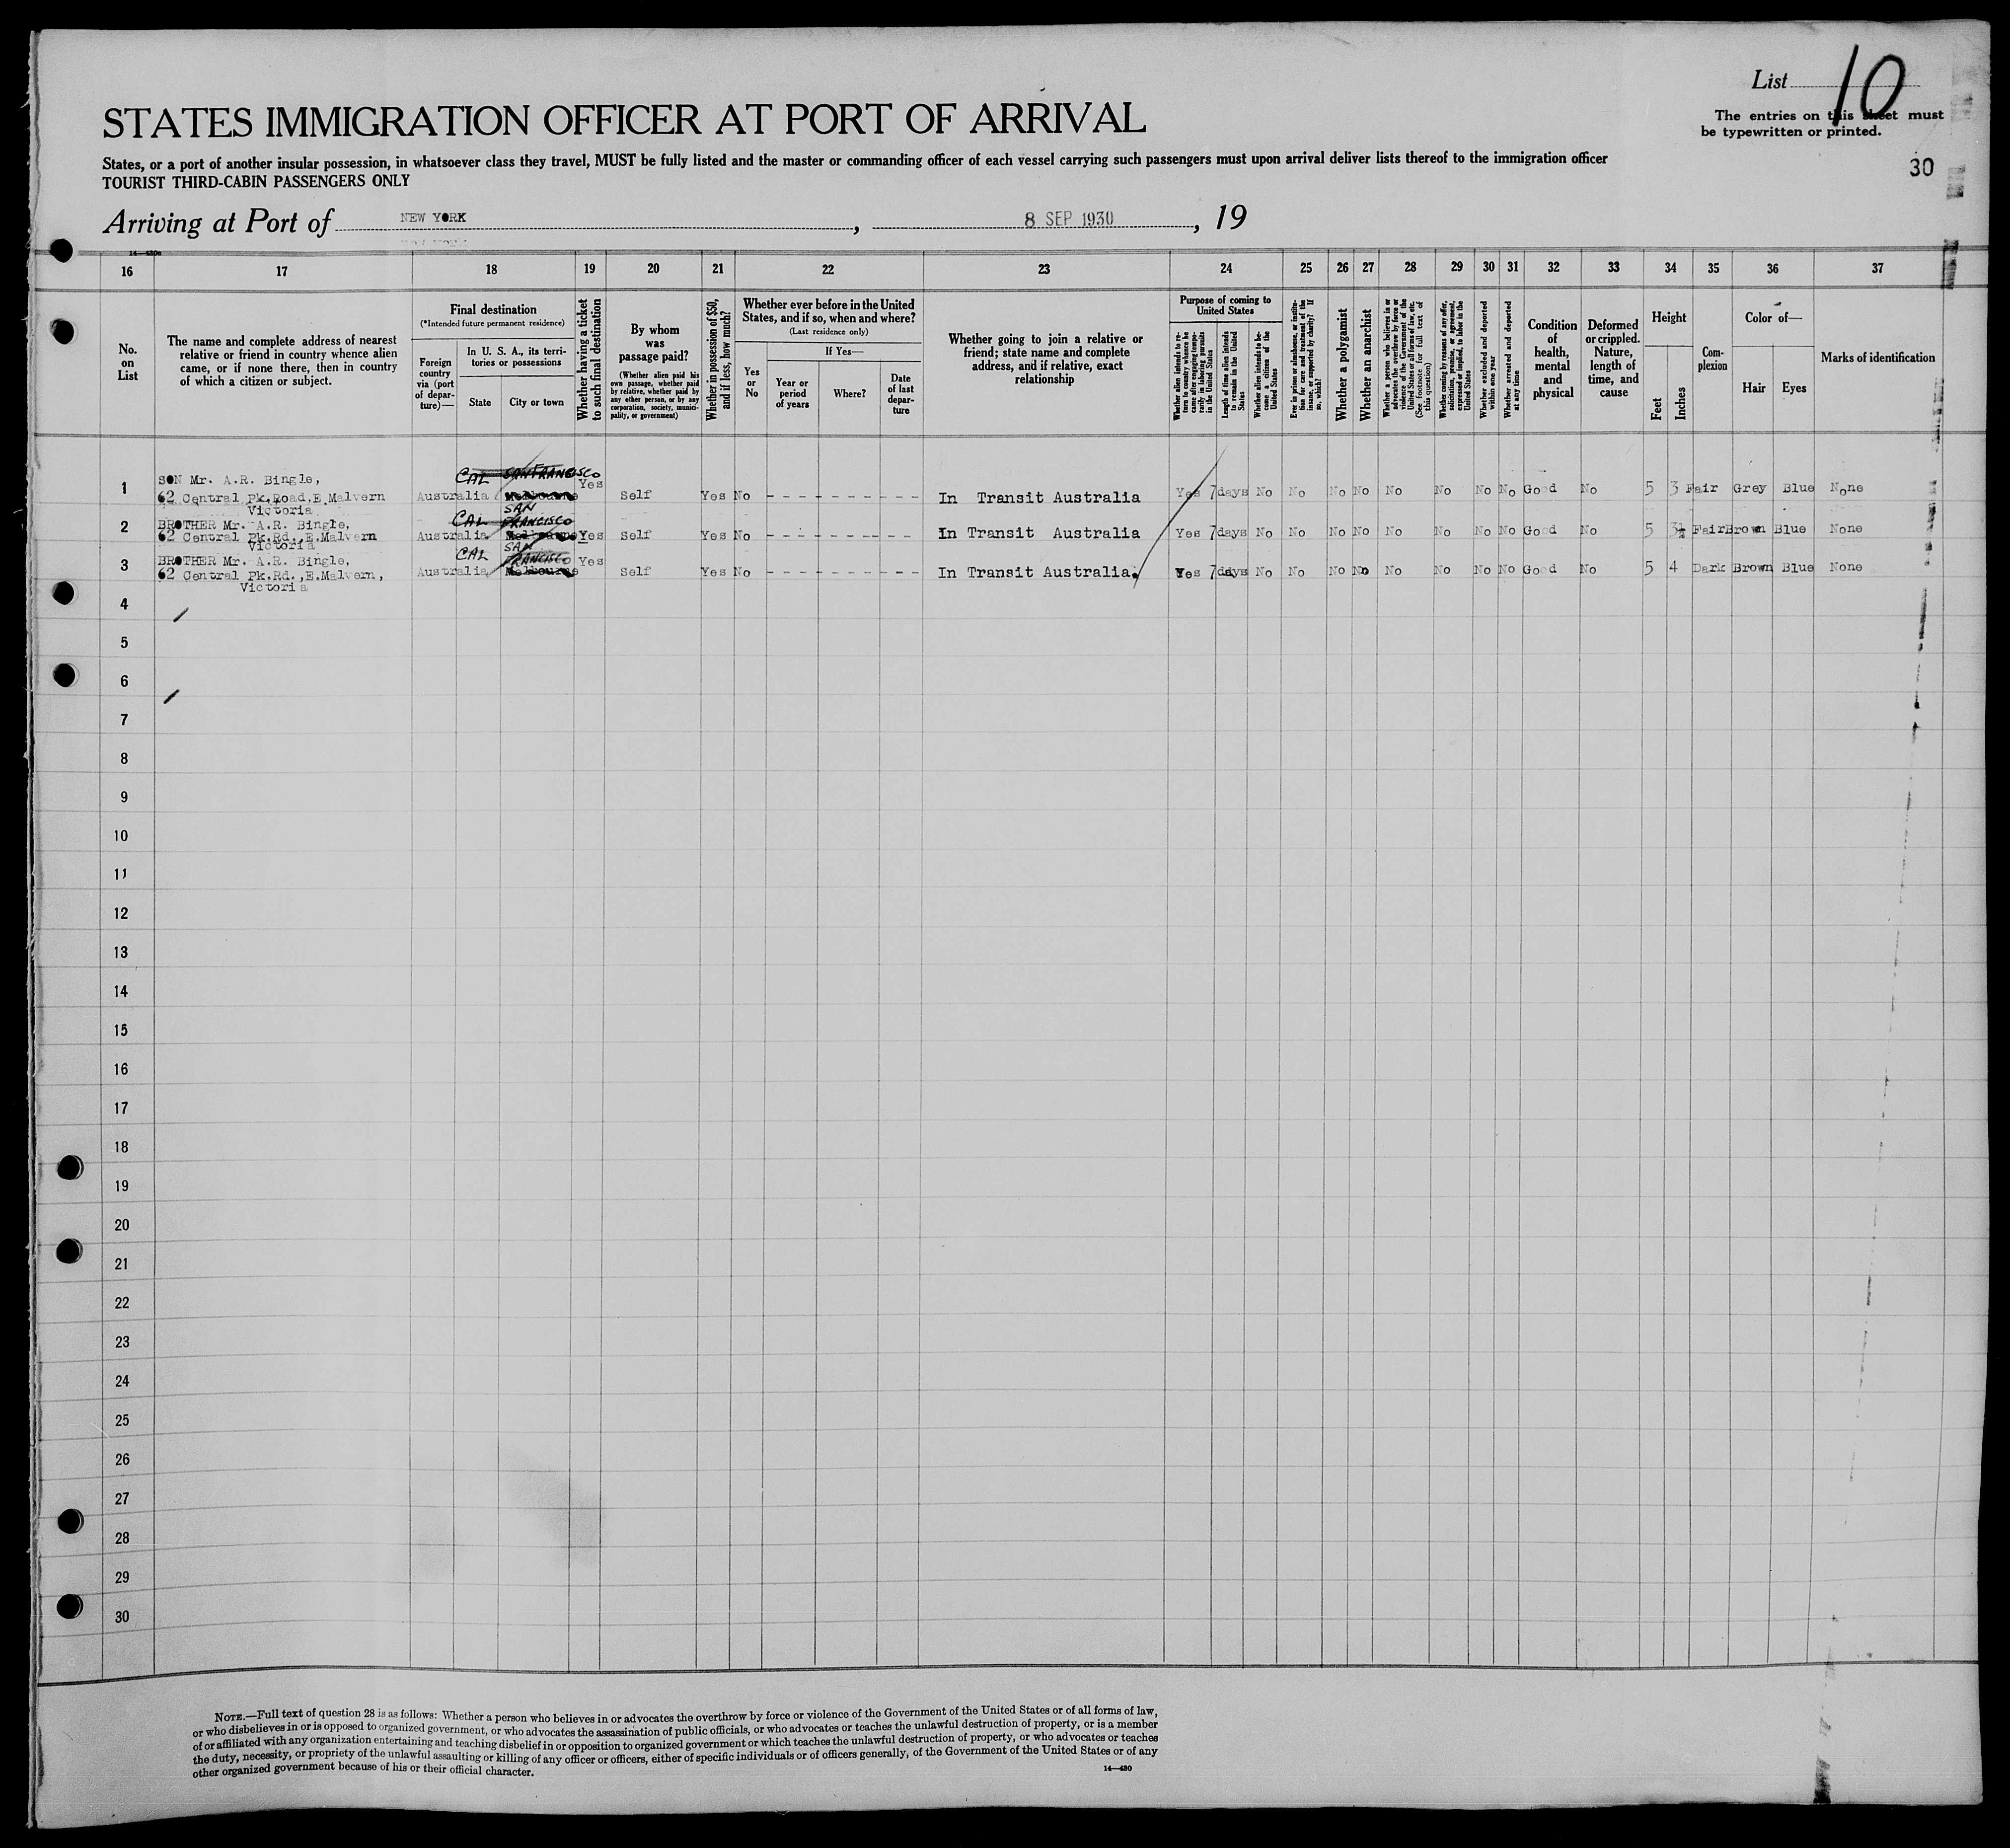 List 10
The entries on this sheet must
be typewritten or printed.
30
STATES IMMIGRATION OFFICER AT PORT OF ARRIVAL
States, or a port of another insular possession, in whatsoever class they travel, MUST be fully listed and the master or commanding officer of each vessel carrying such passengers must upon arrival deliver lists thereof to the immigration officer
TOURIST THIRD-CABIN PASSENGERS ONLY
Arriving at Port of NEW YORK, 8 SEP 1930, 19
16 17 18 19 20 21 22 23 24 25 26 27 28 29 30 31 32 33 34 35 36 37
No. on List
The name and complete address of nearest
relative or friend in country whence alien
came, or if none there, then in country
of which a citizen or subject.
Final destination
(*Intended future permanent residence)
Foreign country via (port of departure)—
In U. S. A., its territories or possessions
State
City or town
Whether having a ticket to such final destination
By whom was passage paid?
(Whether alien paid his own passage, whether paid by relative, whether paid by any other person, or by any corporation, society, municipality, or government)
Whether in possession of $50, and if less, how much?
Whether ever before in the United States, and if so, when and where?
(Last residence only)
Yes or No
If Yes—
Year or period of years
Where?
Date of last departure
Whether going to join a relative or
friend; state name and complete
address, and if relative, exact
relationship
Purpose of coming to United States
Whether alien intends to return to country whence he came after engaging temporarily in laboring pursuits in the United States
Length of time alien intends to remain in the United States
Whether alien intends to become a citizen of the United States
Ever in prison or almshouse, or institution for care and treatment of the insane, or supported by charity? If so, which?
Whether a polygamist
Whether an anarchist
Whether a person who believes in or advocates the overthrow by force or violence of the Government of the United States or all forms of law, etc. (See footnote for full text of this question)
Whether coming by reasons of any offer, solicitation, promise, or agreement, expressed or implied, to labor in the United States
Whether excluded and deported within one year
Whether arrested and deported at any time
Condition of health, mental and physical
Deformed or crippled. Nature, length of time, and cause
Height
Feet
Inches
Complexion
Color of—
Hair
Eyes
Marks of identification
1 SON Mr. A.R. Bingle, CAL SAN FRANCISCO Yes
62 Central Pk.Road.E Malvern Australia Melbourne Self Yes No In Transit Australia Yes 7days No No No No No No No No Good No 5 3 Fair Grey Blue None
Victoria
2 BROTHER Mr. A.R. Bingle, CAL SAN FRANCISCO
62 Central Pk.Rd.,E.Malvern Australia Melbourne Yes Self Yes No In Transit Australia Yes 7days No No No No No No No No Good No 5 3½ Fair Brown Blue None
Victoria
3 BROTHER Mr. A.R. Bingle, CAL SAN FRANCISCO Yes
62 Central Pk.Rd.,E.Malvern, Australia Melbourne Self Yes No In Transit Australia. Yes 7days No No No No No No No No Good No 5 4 Dark Brown Blue None
Victoria
4
5
6
7
8
9
10
11
12
13
14
15
16
17
18
19
20
21
22
23
24
25
26
27
28
29
30
NOTE.—Full text of question 28 is as follows: Whether a person who believes in or advocates the overthrow by force or violence of the Government of the United States or of all forms of law,
or who disbelieves in or is opposed to organized government, or who advocates the assassination of public officials, or who advocates or teaches the unlawful destruction of property, or is a member
of or affiliated with any organization entertaining and teaching disbelief in or opposition to organized government or which teaches the unlawful destruction of property, or who advocates or teaches
the duty, necessity, or propriety of the unlawful assaulting or killing of any officer or officers, either of specific individuals or of officers generally, of the Government of the United States or of any
other organized government because of his or their official character.
14—430